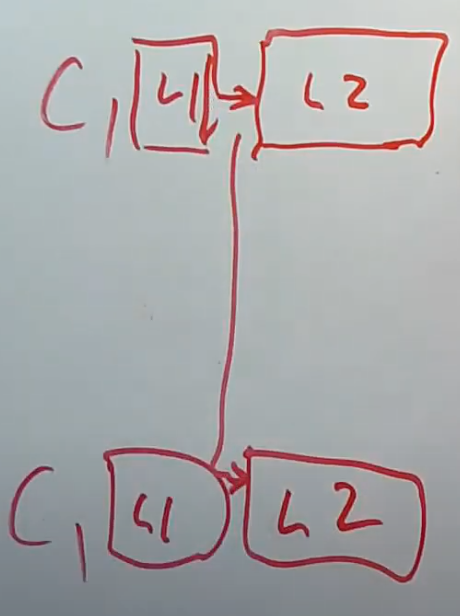 C1 L1 L2
C1 L1 L2